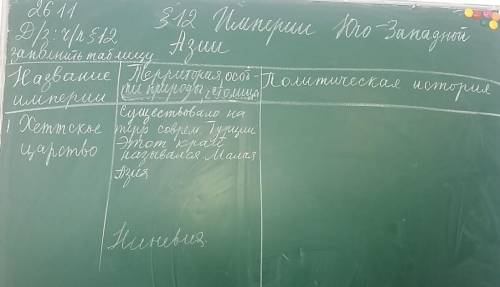 26 11
§12 Империи Юго-Западной
Азии
Д/з: ч/п §12
заполнить таблицу
Название
империи
Территория, особ-
ти природы, столица
Политическая история
1 Хеттское
царство
Существовало на
тер соврем. Турции
Этот край
назывался Малая
Азия
Ниневия